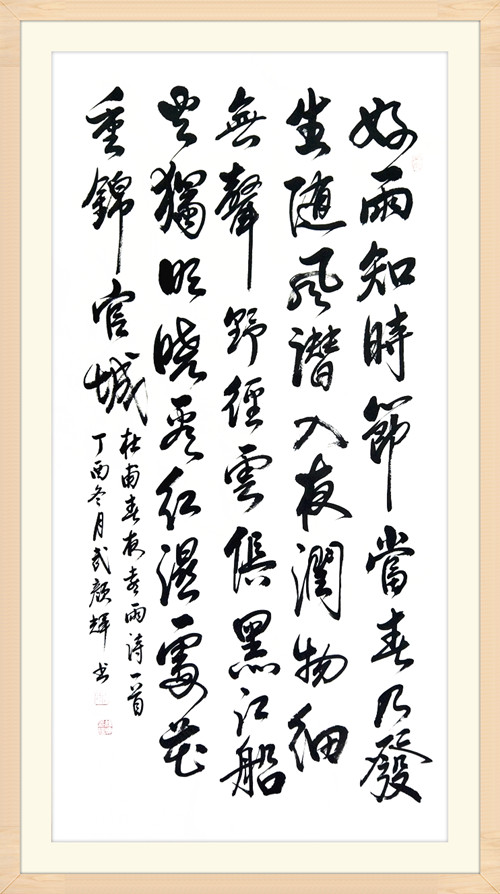 好雨知時節當春乃發
生随風潜入夜潤物細
無聲野徑雲俱黑江船
火獨明曉看紅濕處花
重錦官城
杜甫春夜喜雨诗一首
丁酉冬月武顏輝书